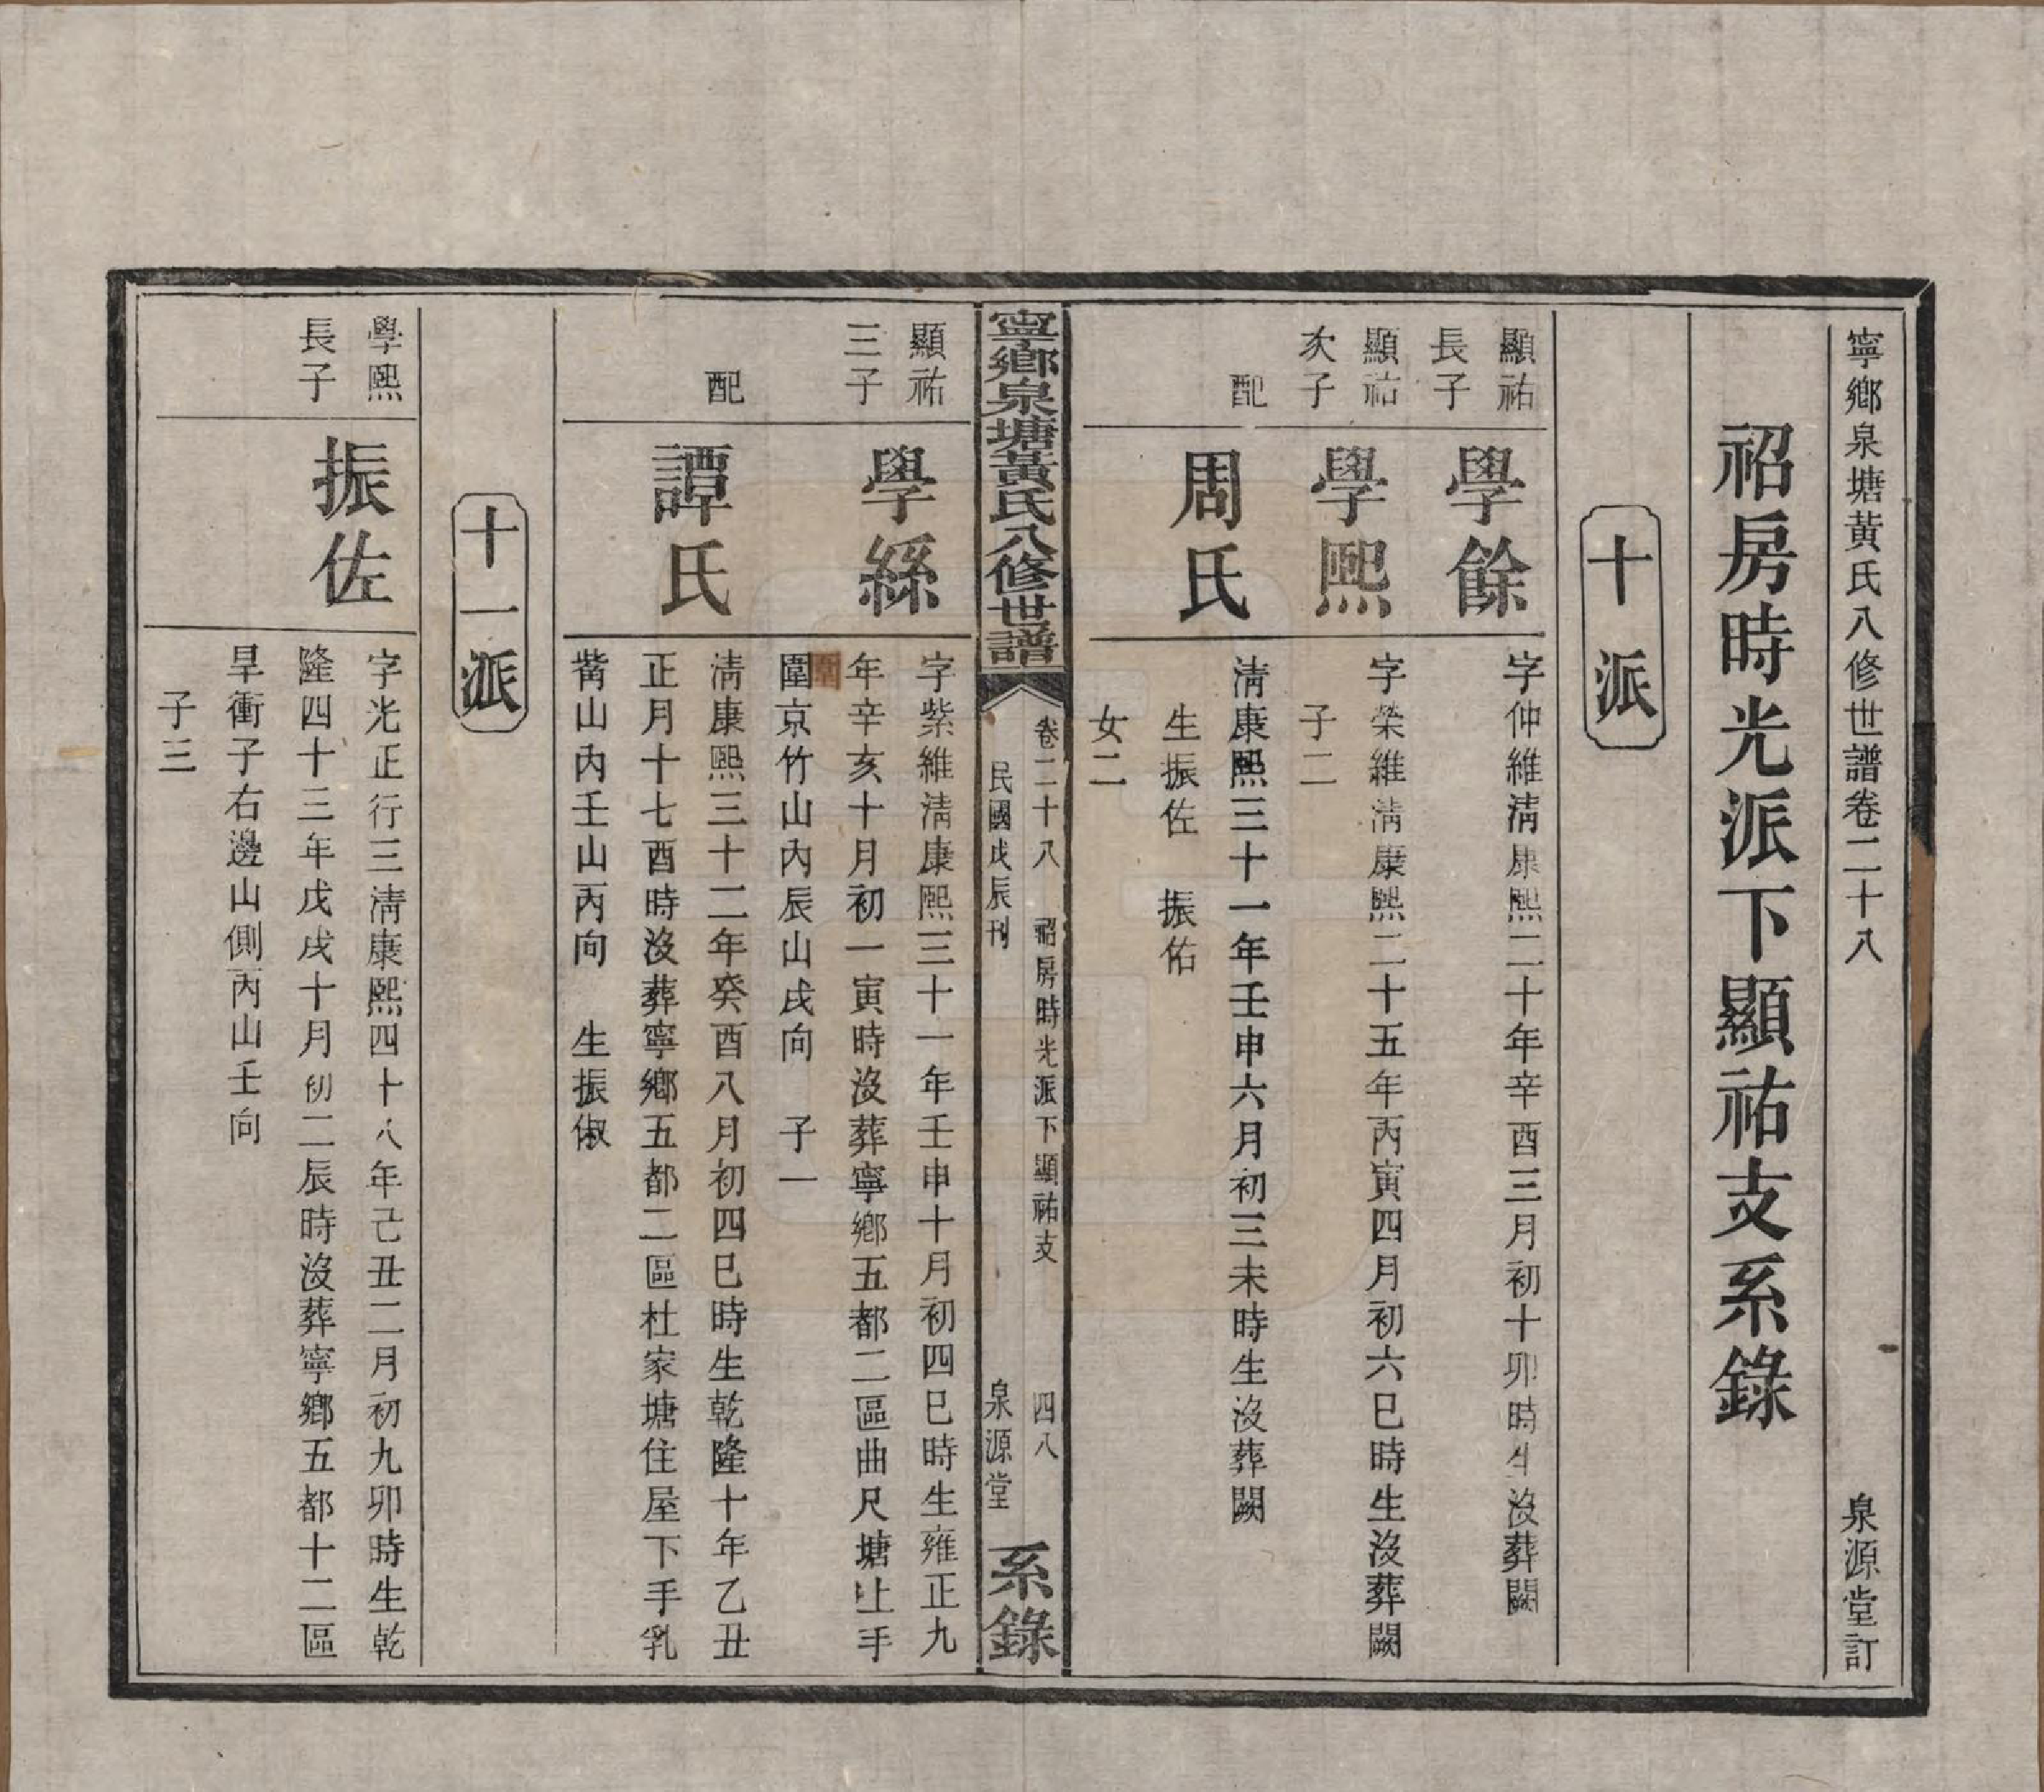 寧鄉泉塘黃氏八修世譜卷二十八　泉源堂訂
祒房時光派下顯祐支系錄
十派
顯祐
長子
學餘
字仲維淸康熙二十年辛酉三月初十卯時生沒葬闕
顯祐
次子
學熙
字榮維淸康熙二十五年丙寅四月初六巳時生沒葬闕
子二
配
周氏
淸康熙三十一年壬申六月初三未時生沒葬闕
生振佐　振佑
女二
寧鄉泉塘黃氏八修世譜
卷二十八　祒房時光派下顯祐支　四八
民國戊辰刊　泉源堂
系錄
顯祐
三子
學絲
字紫維淸康熙三十一年壬申十月初四巳時生雍正九
年辛亥十月初一寅時沒葬寧鄉五都二區曲尺塘上手
圍京竹山內辰山戌向　子一
配
譚氏
淸康熙三十二年癸酉八月初四巳時生乾隆十年乙丑
正月十七酉時沒葬寧鄉五都二區杜家塘住屋下手乳
山內壬山丙向　生振俶
十一派
學熙
長子
振佐
字光正行三淸康熙四十八年己丑二月初九卯時生乾
隆四十三年戊戌十月初二辰時沒葬寧鄉五都十二區
旱衝子右邊山側丙山壬向
子三